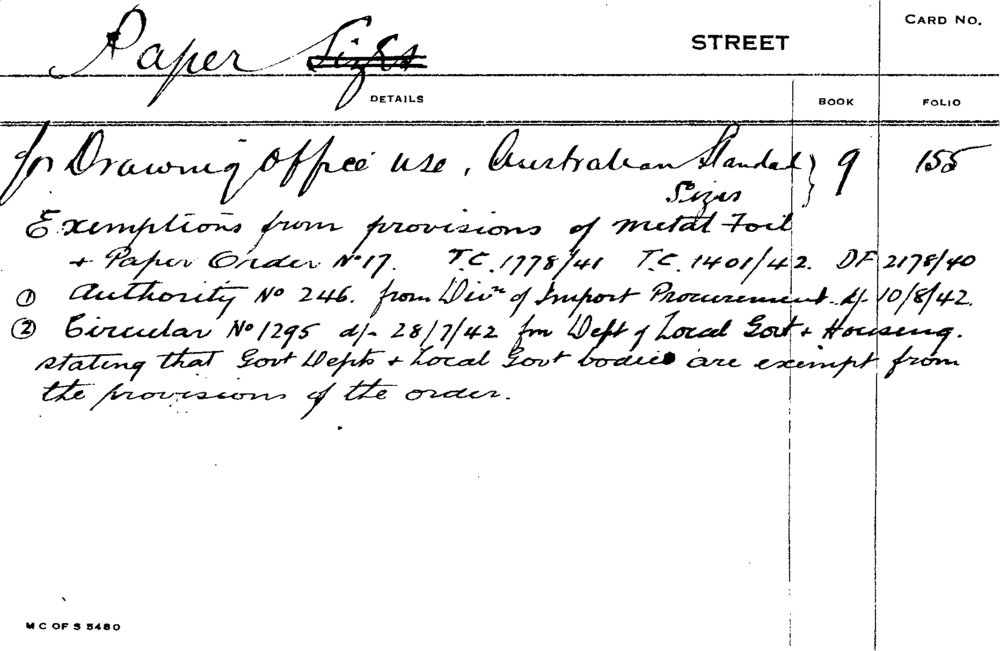 CARD NO.
Paper Sizes STREET
DETAILS BOOK FOLIO
for Drawing Office use, Australian Standard } 9 155
Sizes
Exemptions from provisions of Metal Foil
+ Paper Order No 17. T.C. 1778/41 T.C. 1401/42. DF 2178/40
① Authority No 246. from Divn of Import Procurement d/- 10/8/42.
② Circular No 1295 d/- 28/7/42 fm Dept of Local Govt + Housing.
stating that Govt Depts + Local Govt bodies are exempt from
the provisions of the order.
M C OF S 5480